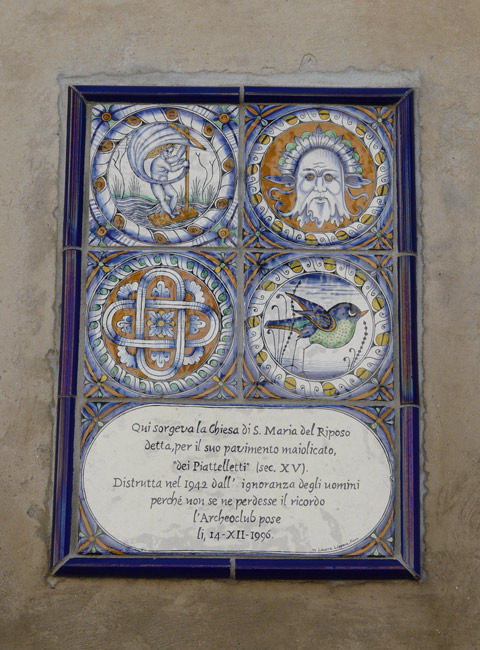 Qui sorgeva la Chiesa di S. Maria del Riposo
detta, per il suo pavimento maiolicato,
"dei Piattelletti" (sec. XV).
Distrutta nel 1942 dall' ignoranza degli uomini
perché non se ne perdesse il ricordo
l'Archeoclub pose
lì, 14-XII-1996.